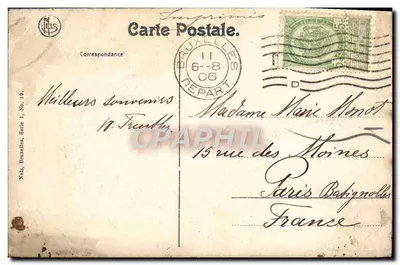 Imprimés
Carte Postale.
Correspondance
BRUXELLES
11
6–8
06
DEPART
D
Meilleurs souvenirs
Madame Marie Monot
15 rue des Moines
Paris Batignolles
France
CPAPHIL
Nels, Bruxelles, Serie 1, No. 19.